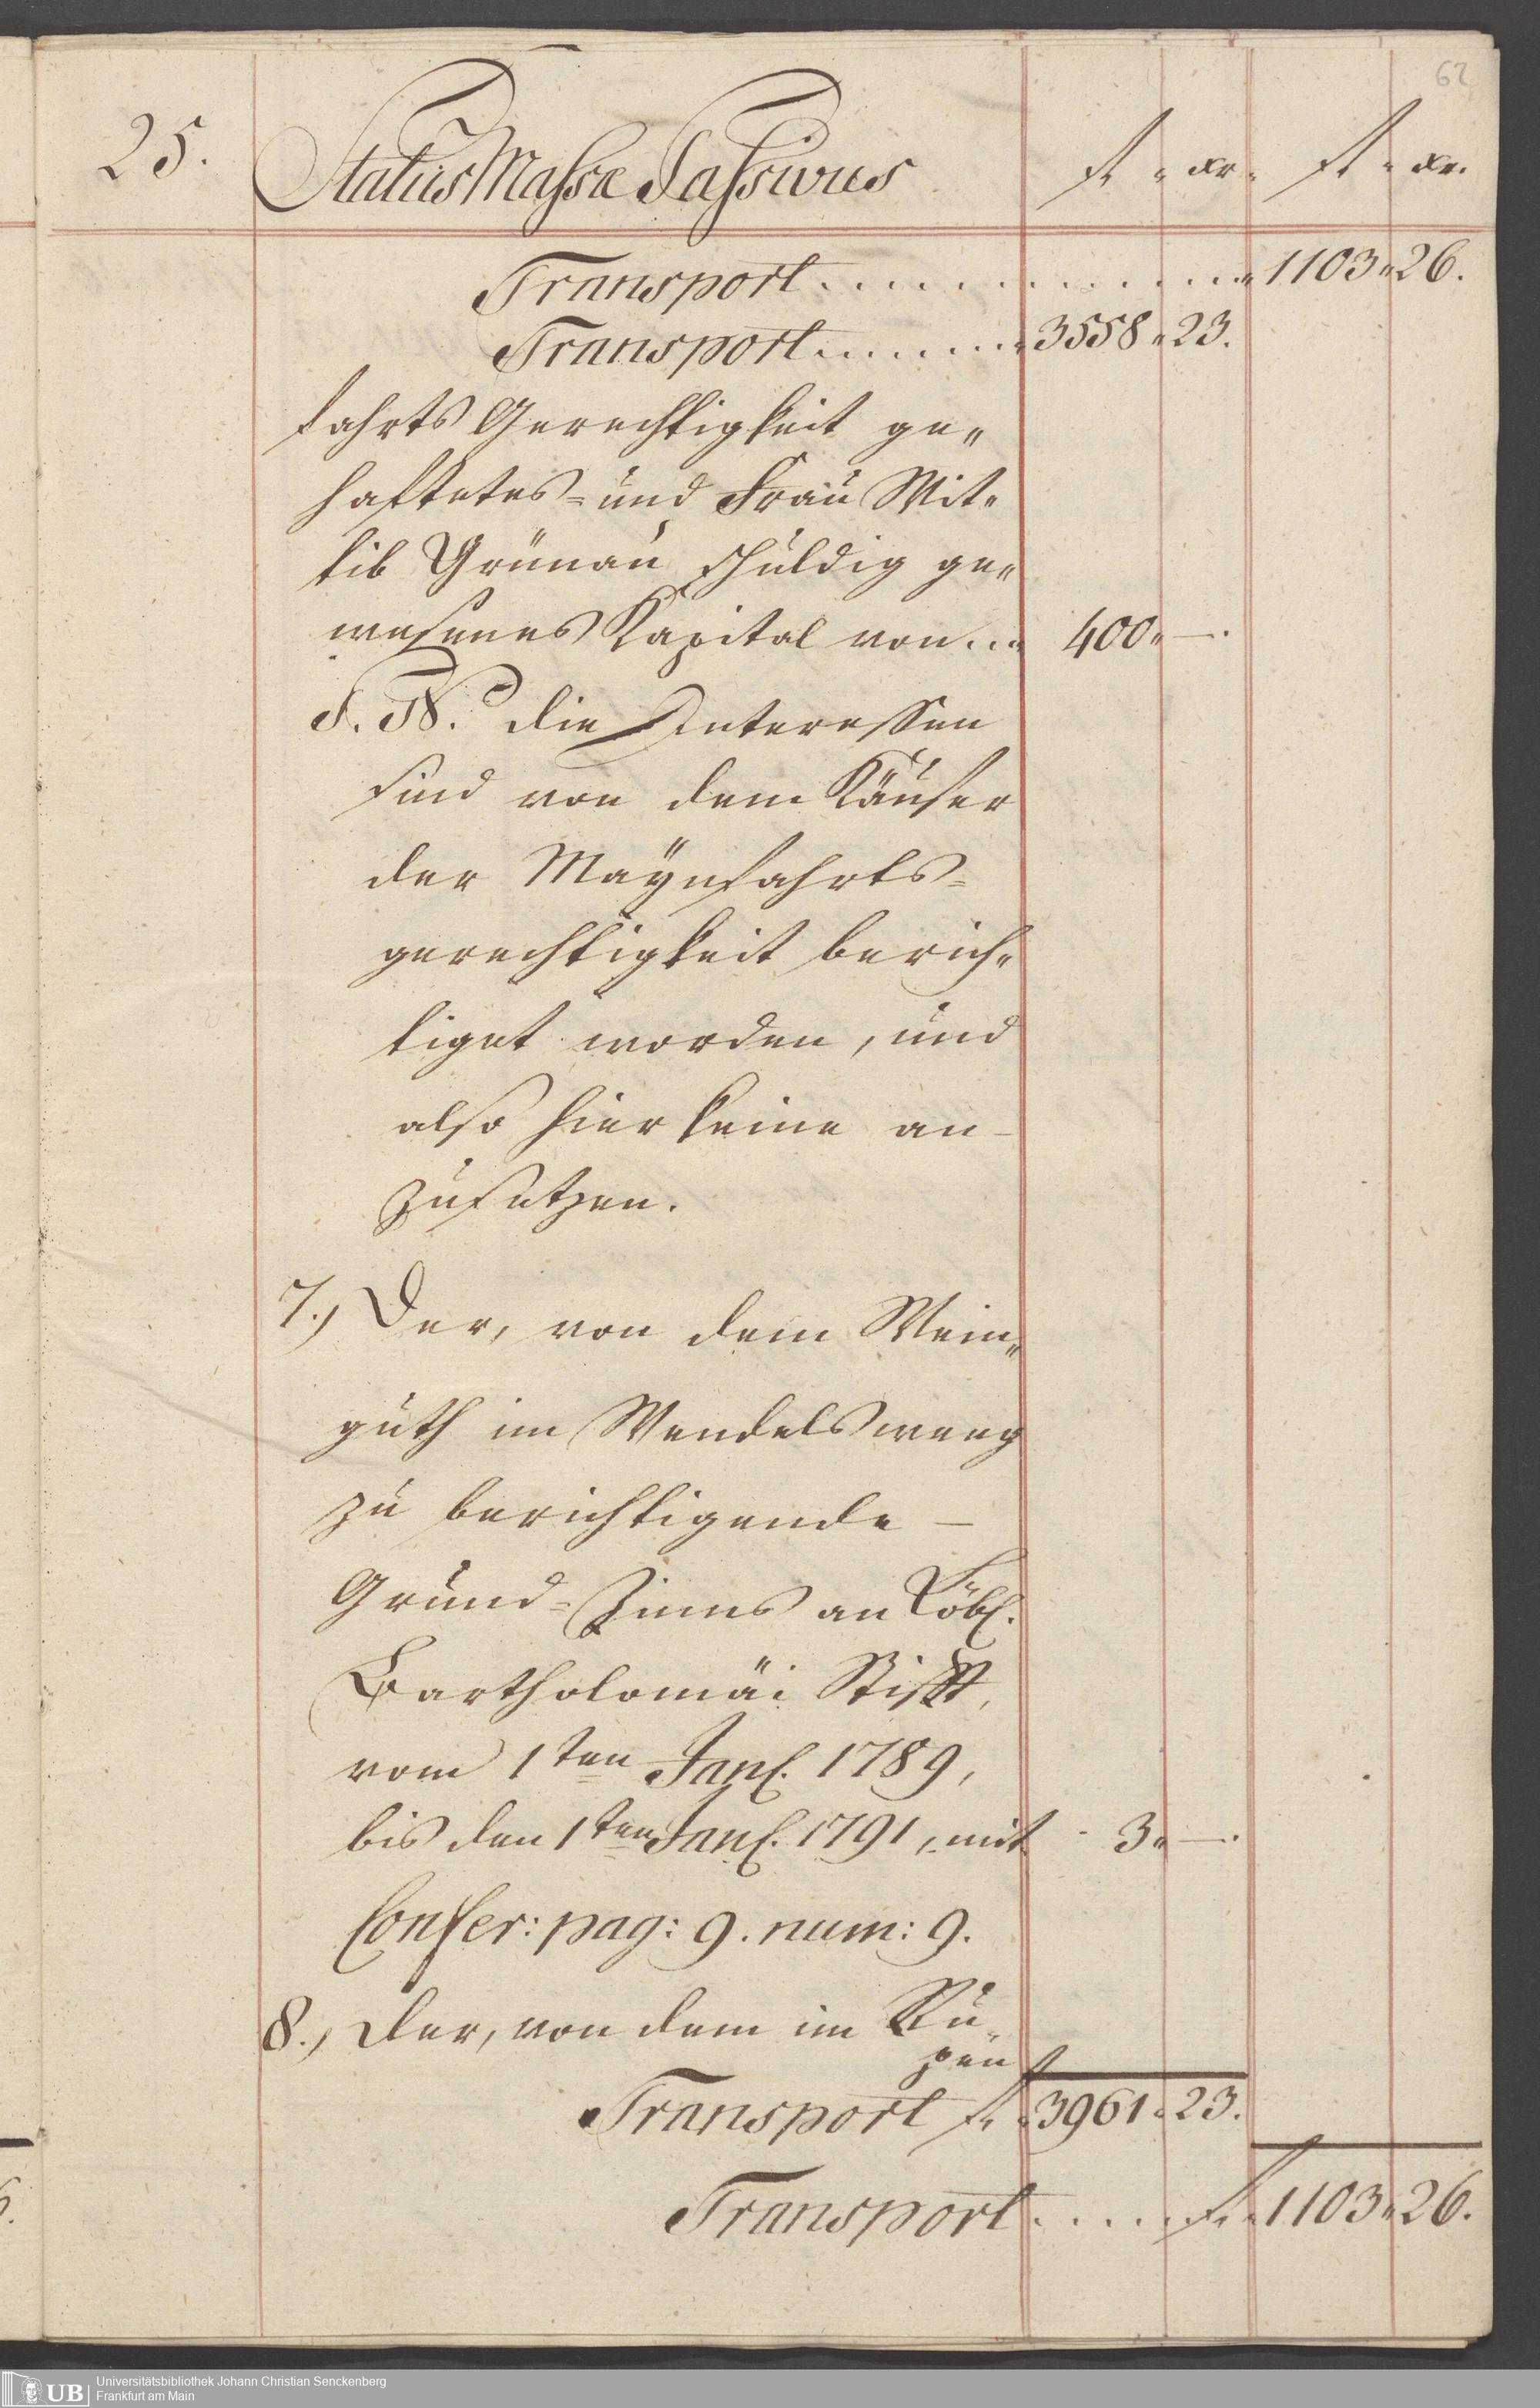 62
25. Status Massæ Passivus fl. xr. fl. xr.
Transport . . . . . . . . . . . . 1103 " 26.
Transport . . . . . . . . 3558 " 23.
fahrts Gerechtigkeit ge„
haftetes= und Frau Wit„
tib Grünau schuldig ge„
wesenes Kapital von . . . 400 " —.
P. N. die Interessen
sind von dem Käufer
der Maÿnfahrts=
gerechtigkeit berich„
tiget worden, und
also hier keine an-
zusetzen.
7.) Der, von dem Wein„
guth im Wendelsweeg
zu berichtigende —
Grund=Zinns an Löbl.
Bartholomäi Stifft,
vom 1ten Janl. 1789,
bis den 1ten Janl. 1791, mit - 3 " —.
Confer: pag: 9. num: 9.
8.) Der, von dem im Ru„
Transport fl. 3961 " 23.
Transport . . . . . fl. 1103 " 26.
UB Universitätsbibliothek Johann Christian Senckenberg
Frankfurt am Main